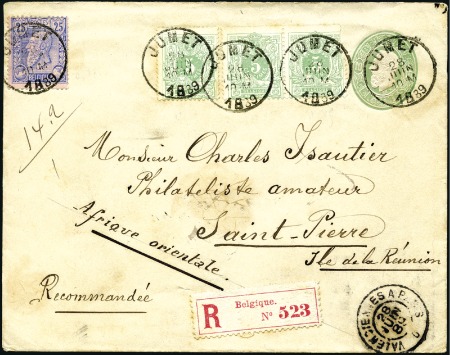 JUMET
28
JUIN
1889
JUMET
28
JUIN
1889
JUMET
28
JUIN
1889
JUMET
28
JUIN
1889
JUMET
28
JUIN
1889
14.2
Monsieur Charles Isautier
Philateliste amateur
Saint-Pierre
Ile de la Réunion
Afrique orientale.
Recommandée
Belgique.
R Nº 523
VALENCIENNES A PARIS
28
JUIN
89